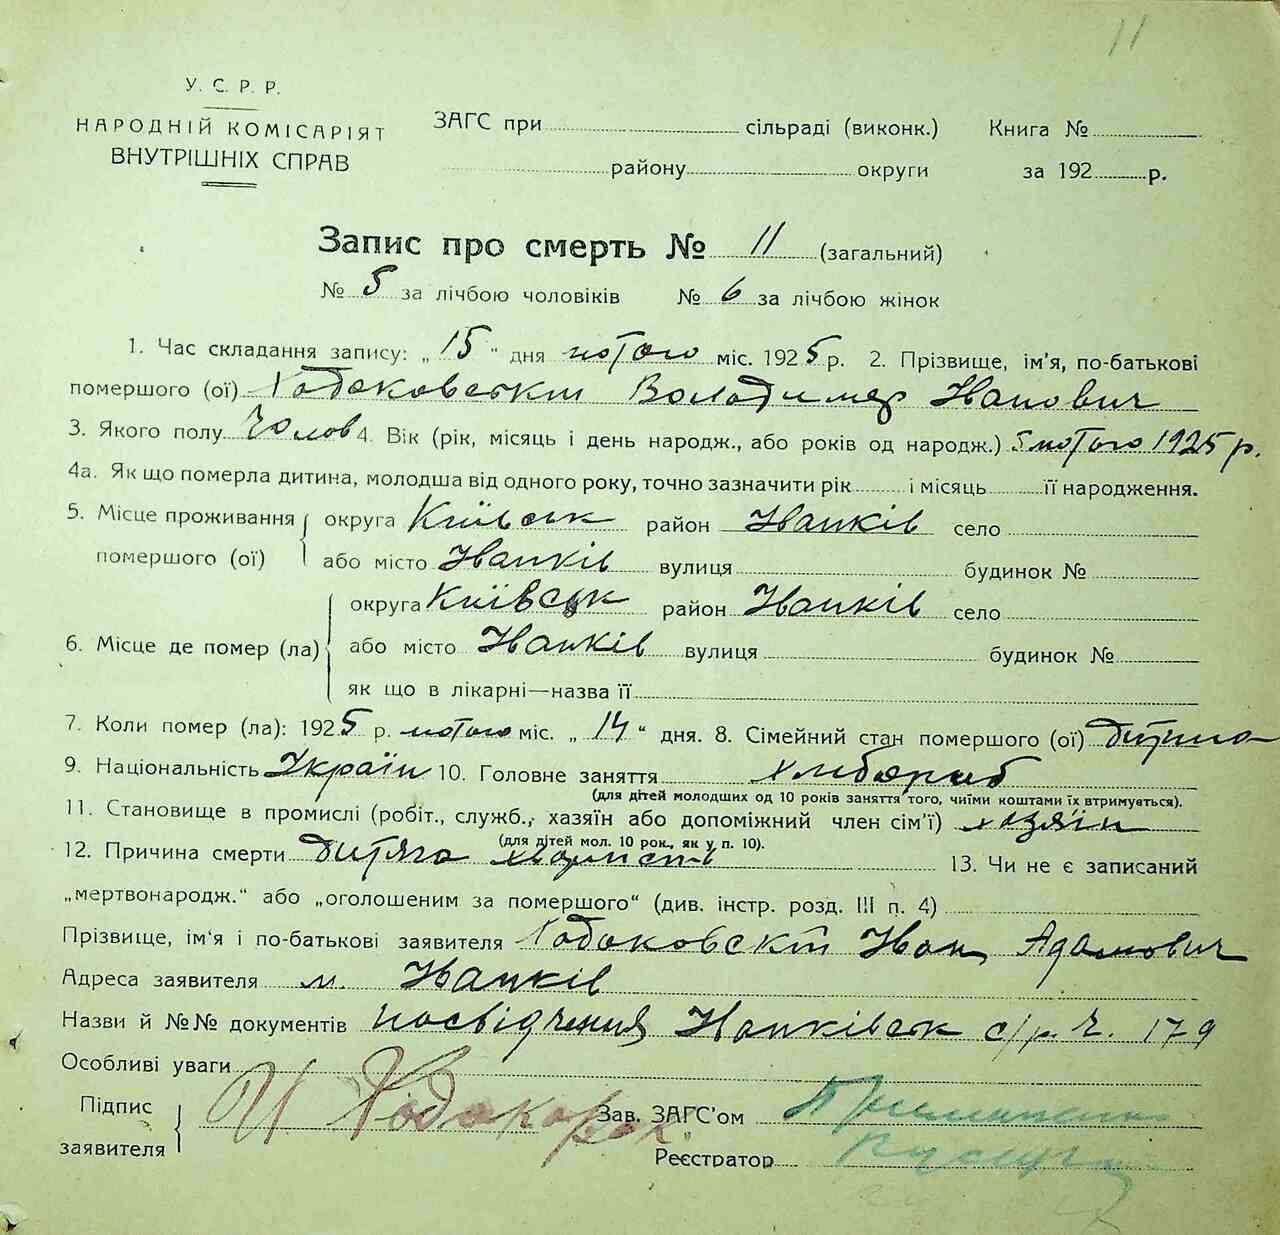 11
У. С. Р. Р.
НАРОДНІЙ КОМІСАРІЯТ
ВНУТРІШНІХ СПРАВ
ЗАГС при сільраді (виконк.) Книга №
району округи за 192 р.
Запис про смерть № 11 (загальний)
№ 5 за лічбою чоловіків № 6 за лічбою жінок
1. Час складання запису: „15“ дня лютого міс. 1925 р. 2. Прізвище, ім'я, по-батькові
помершого (ої) Володимер Іванович
3. Якого полу Чолов 4. Вік (рік, місяць і день народж., або років од народж.) 5 лютого 1925 р.
4а. Як що померла дитина, молодша від одного року, точно зазначити рік і місяць її народження.
5. Місце проживання помершого (ої) округа Київськ район Іванків село
або місто Іванків вулиця будинок №
6. Місце де помер (ла) округа Київськ район Іванків село
або місто Іванків вулиця будинок №
як що в лікарні—назва її
7. Коли помер (ла): 1925 р. лютого міс. „14“ дня. 8. Сімейний стан помершого (ої) дитина
9. Національність Україн 10. Головне заняття хлібороб
(для дітей молодших од 10 років заняття того, чиїми коштами їх втримується).
11. Становище в промислі (робіт., служб., хазяїн або допоміжний член сім'ї) хазяїн
(для дітей мол. 10 рок., як у п. 10).
12. Причина смерти дитяча хворість 13. Чи не є записаний
„мертвонародж.“ або „оголошеним за помершого“ (див. інстр. розд. III п. 4)
Прізвище, ім'я і по-батькові заявителя Іван Адамович
Адреса заявителя м. Іванків
Назви й №№ документів посвідчення Іванківськ с/р. ч. 179
Особливі уваги
Підпис заявителя Зав. ЗАГС'ом
Реєстратор